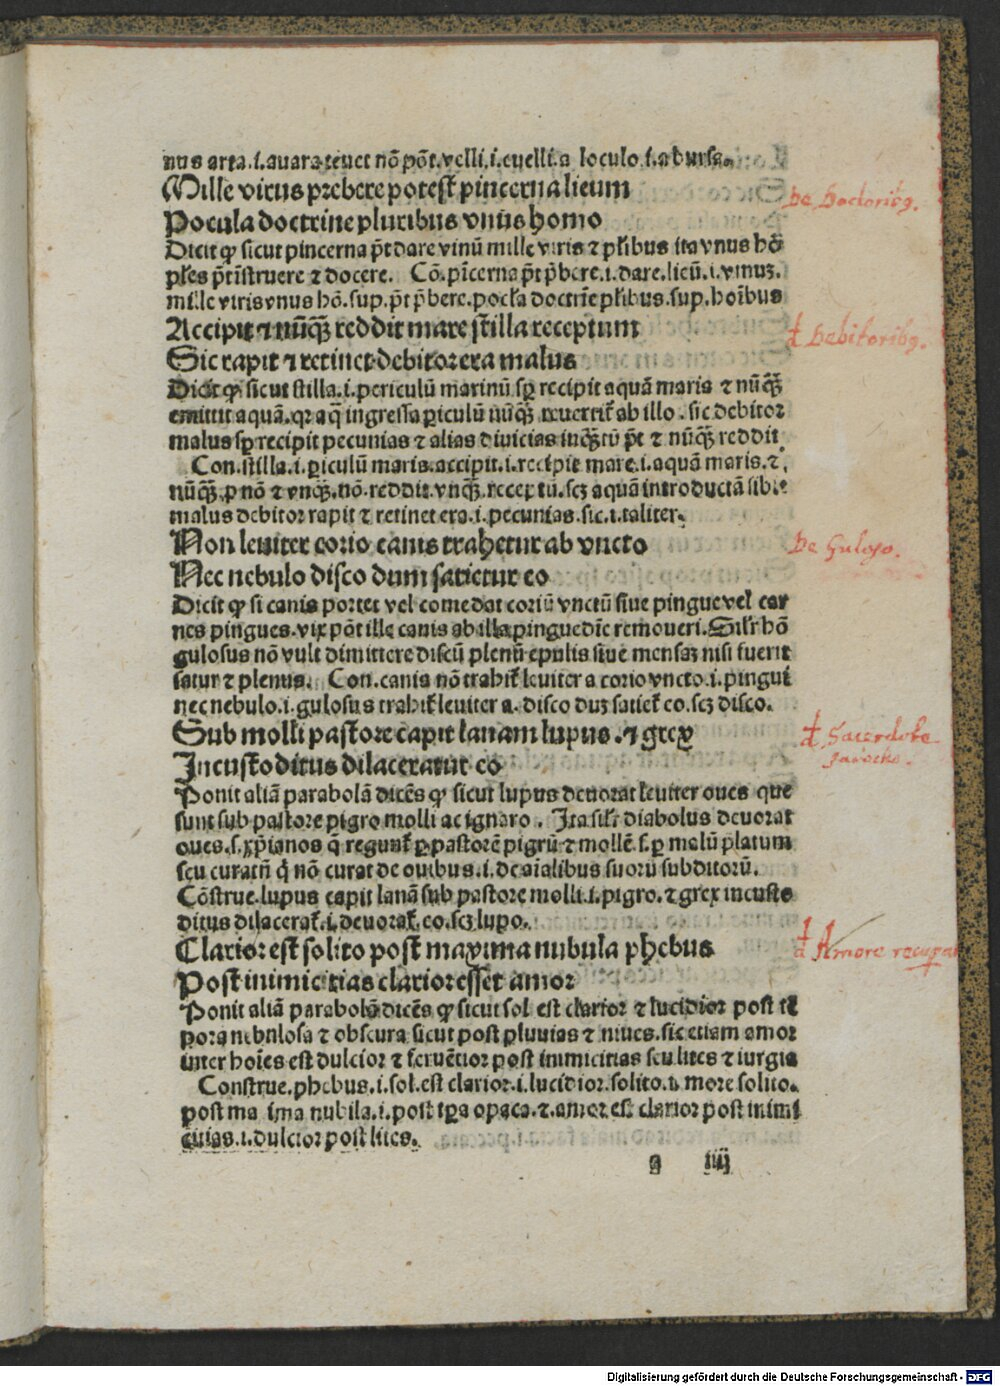 nus arta.i.auara tenet nõ põt.velli.i.euelli.a loculo.i.a bursa.
Mille virus prebere potest pincerna lieum
De Doctoribꝰ.
Pocula doctrine pluribus vnus homo
Dicit ꝙ sicut pincerna p̃t dare vinũ mille viris ⁊ pl̃ibus ita vnus hõ
pl̃es p̃t ĩstruere ⁊ docere. Cõ. pĩcerna p̃t p̃bere.i.dare.lieũ.i.vinuz.
mille viris vnus hõ.sup.p̃t p̃bere.pocl̃a doctrĩe pl̃ibus.sup.hoĩbus
Accipit ⁊ nũqꝫ reddit mare stilla receptum
Debitoribꝰ.
Sic rapit ⁊ retinet debitor era malus
Dicit ꝙ sicut stilla.i.periculũ marinũ sꝑ recipit aquã maris ⁊ nũqꝫ
emittit aquã.qꝛ aq̃ ingressa ꝑiculũ nũqꝫ reuertit̃ ab illo. sic debitor
malus sꝑ recipit pecunias ⁊ alias diuicias inqꝫtũ p̃t ⁊ nũqꝫ reddit
Con.stilla.i.ꝑiculũ maris.accipit.i.recipit mare.i.aquã maris.⁊
nũqꝫ.p nõ ⁊ vnqꝫ.nõ.reddit.vnqꝫ.receptũ.scꝫ aquã introductã sibi.
malus debitor rapit ⁊ retinet era.i.pecunias.sic.i.taliter.
Non leuiter corio canis trahetur ab vncto
De Guloso.
Nec nebulo disco dum satietur eo
Dicit ꝙ si canis portet vel comedat coriũ vnctũ siue pingue vel car
nes pingues.vix põt ille canis ab illa pinguedĩe remoueri.Sil̃r hõ
gulosus nõ vult dimittere discũ plenũ epulis siue mensaz nisi fuerit
satur ⁊ plenus. Con.canis nõ trahit̃ leuiter a corio vncto.i.pingui
nec nebulo.i.gulosus trahit̃ leuiter a.disco duz satiet̃ eo.scꝫ disco.
Sub molli pastore capit lanam lupus.⁊ grex
Sacerdote
Incustoditus dilaceratur eo
Ponit aliã parabolã dicẽs ꝙ sicut lupus deuorat leuiter oues que
sunt sub pastore pigro molli ac ignaro. Ita sil̃r diabolus deuorat
oues.s.xp̃ianos q̃ regunt̃ ꝑ pastorẽ pigrũ ⁊ mollẽ.s.ꝑ malũ p̃latum
seu curatũ q̃ nõ curat de ouibus.i.de aĩalibus suorũ subditorũ.
Cõstrue.lupus capit lanã sub pastore molli.i.pigro.⁊ grex incusto
ditus dilacerat̃.i.deuorat̃.eo.scꝫ lupo.
Clarior est solito post maxima nubula phebus
Amore
Post inimicitias clarior esset amor
Ponit aliã parabolã dicẽs ꝙ sicut sol est clarior ⁊ lucidior post tẽ
pora nebulosa ⁊ obscura sicut post pluuias ⁊ niues.sic etiam amor
inter hoĩes est dulcior ⁊ feruẽtior post inimicitias seu lites ⁊ iurgia
Construe.phebus.i.sol.est clarior.i.lucidior.solito.i.more solito.
post ma ima nubila.i.post tp̃a opaca.⁊.amor est clarior post inimi
cicias.i.dulcior post lites.
a iiij
Digitalisierung gefördert durch die Deutsche Forschungsgemeinschaft - DFG